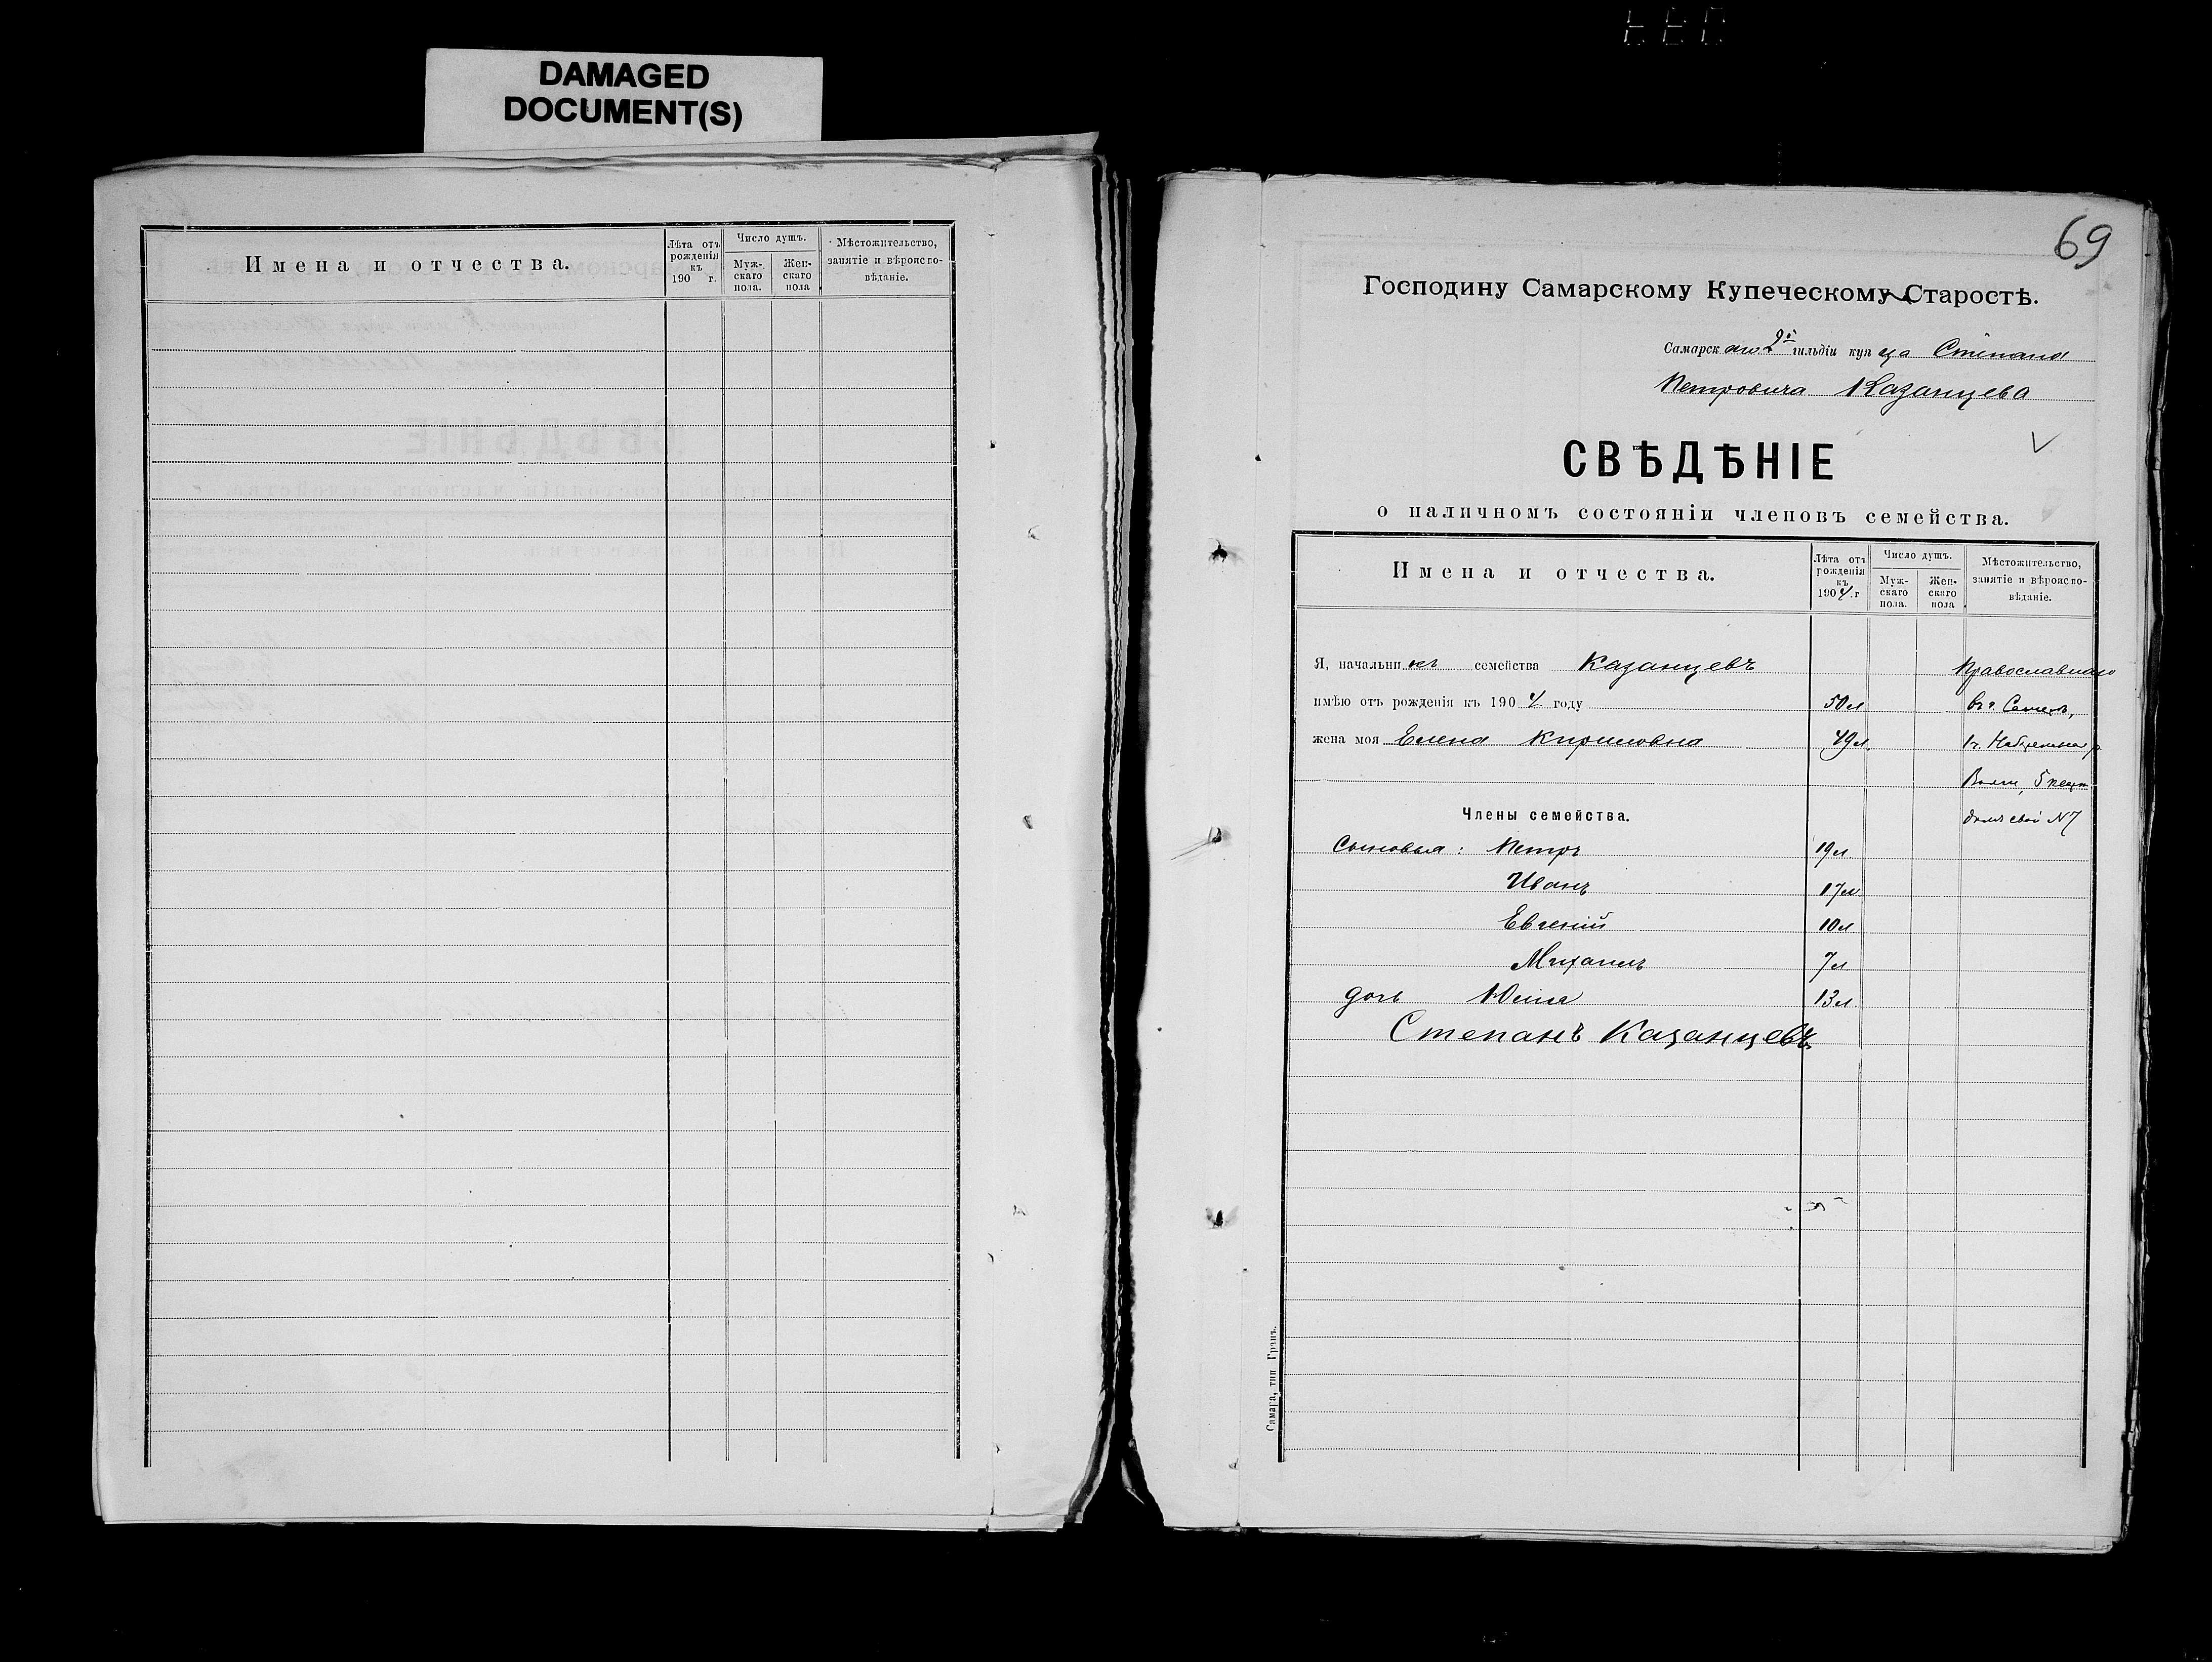 DAMAGED
DOCUMENT(S)
Имена и отчества.
Лѣта отъ рожденія къ 190 г.
Число душъ.
Муж-скаго пола.
Жен-скаго пола
Мѣстожительство, занятіе и вѣроиспо-вѣданіе.
69
Господину Самарскому Купеческому Старостѣ.
Самарскаго 2й гильдіи купца Степана
Петровича Казанцева
СВѢДѢНІЕ
о наличномъ состояніи членовъ семейства.
Имена и отчества.
Лѣта отъ рожденія къ 1904 г
Число душъ.
Муж-скаго пола.
Жен-скаго пола
Мѣстожительство, занятіе и вѣроиспо-вѣданіе.
Я, начальникъ семейства Казанцевъ Православнаго
имѣю отъ рожденія къ 1904 году 50 л въ г.
жена моя Елена Кириловна 49 л
Волги, 5
Члены семейства. домъ свой N7
Сыновья: Петръ 19 л
Иванъ 17 л
Евгеній 10 л
Михаилъ 7 л
дочь 13 л
Степанъ Казанцевъ
Самара, тип Гранъ.